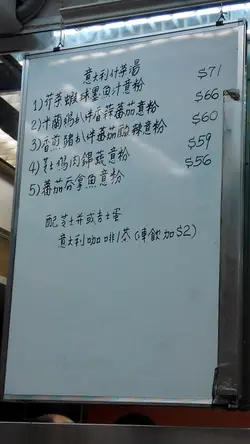 意大利什菜湯
1) 蝦球墨魚汁意粉 $71
2) 米蘭鷄扒伴香蒜蕃茄意粉 $66
3) 香煎豬扒伴蕃茄酸辣意粉 $60
4) 芝士鷄肉意粉 $59
5) 蕃茄吞拿魚意粉 $56
配芝士或吉士蛋
意大利咖啡/茶 (凍飲加$2)